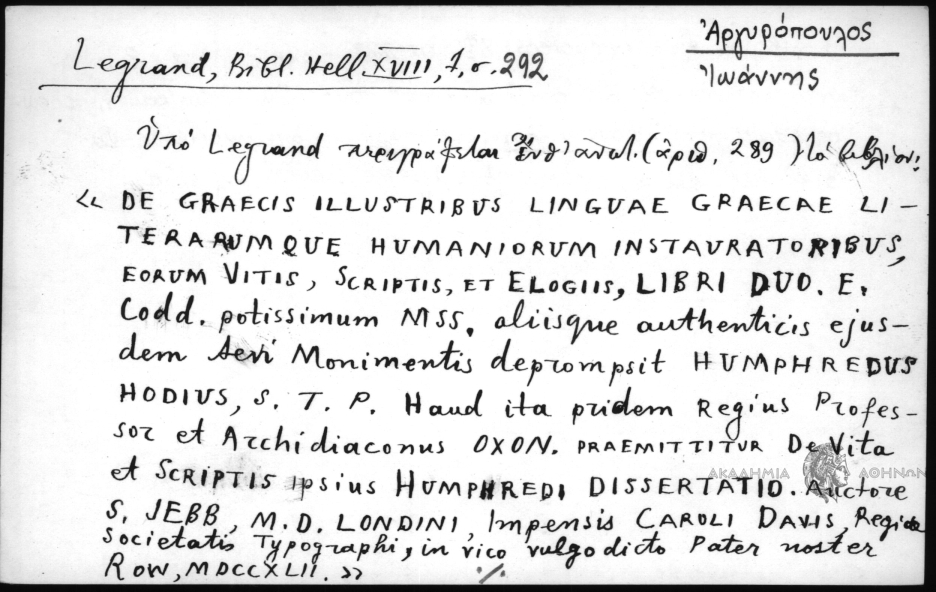 Ἀργυρόπουλος
Ἰωάννης
Legrand, Bibl. Hell. XVIII, 1, σ. 292
Ὑπό Legrand περιγράφεται ἐνθ' ἀνωτ. (ἀριθ. 289) τό βιβλίον:
« DE GRAECIS ILLUSTRIBUS LINGUAE GRAECAE LI-
TERARUMQUE HUMANIORUM INSTAURATORIBUS,
EORUM VITIS, SCRIPTIS, ET ELOGIIS, LIBRI DUO. E.
Codd. potissimum MSS. aliisque authenticis ejus-
dem Aevi Monimentis deprompsit HUMPHREDUS
HODIUS, S. T. P. Haud ita pridem Regius Profes-
sor et Archidiaconus OXON. PRAEMITTITUR De Vita
et SCRIPTIS ipsius HUMPHREDI DISSERTATIO. Auctore
S. JEBB, M.D. LONDINI, Impensis CAROLI DAVIS, Regiae
Societatis Typographi, in vico vulgo dicto Pater noster
ROW, MDCCXLII. » ·/.
ΑΚΑΔΗΜΙΑ ΑΘΗΝΩΝ